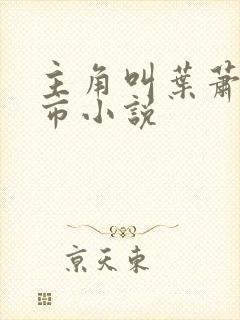 主角叫葉蕭
市小說
京天東